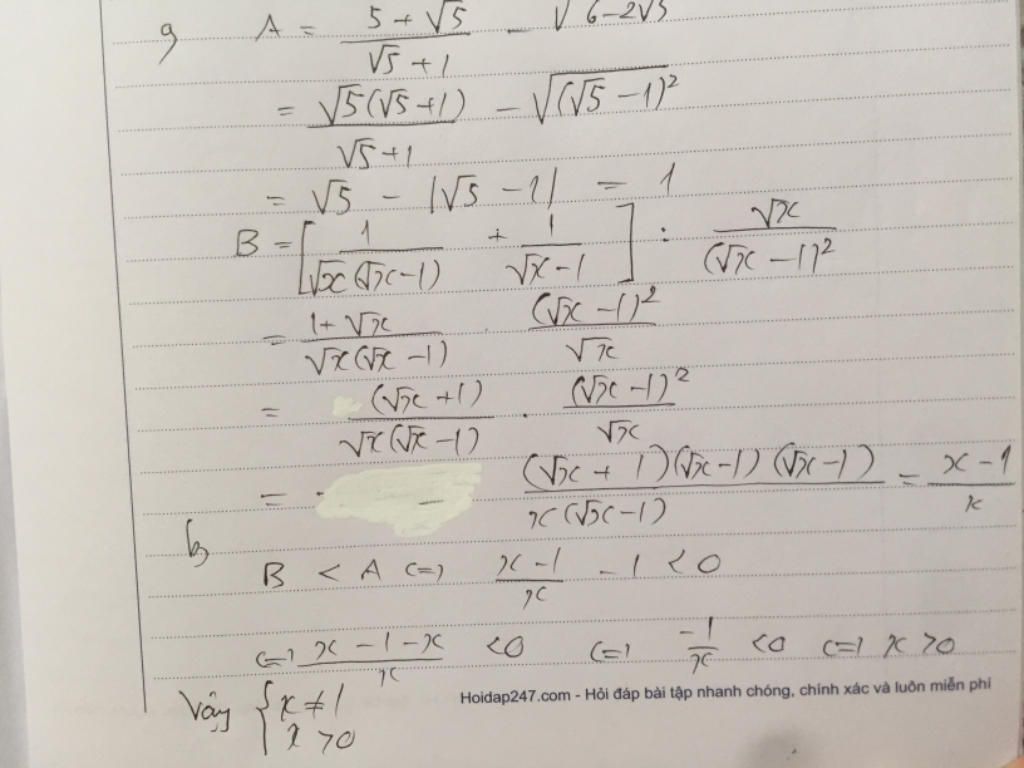 a) A = (5 + √5)/(√5 + 1) - √(6-2√5)
= √5(√5+1)/(√5+1) - √((√5 - 1)²)
= √5 - |√5 - 1| = 1
B = [1/(√x(√x-1)) + 1/(√x-1)] : √x/(√x - 1)²
= (1+√x)/(√x(√x-1)) · (√x - 1)²/√x
= (√x+1)/(√x(√x-1)) · (√x-1)²/√x
= (√x + 1)(√x-1)(√x-1)/(x(√x-1)) = (x-1)/x
b)
B < A <=> (x-1)/x - 1 < 0
<=> (x-1-x)/x < 0 <=> -1/x < 0 <=> x > 0
Vậy { x ≠ 1
x > 0
Hoidap247.com - Hỏi đáp bài tập nhanh chóng, chính xác và luôn miễn phí